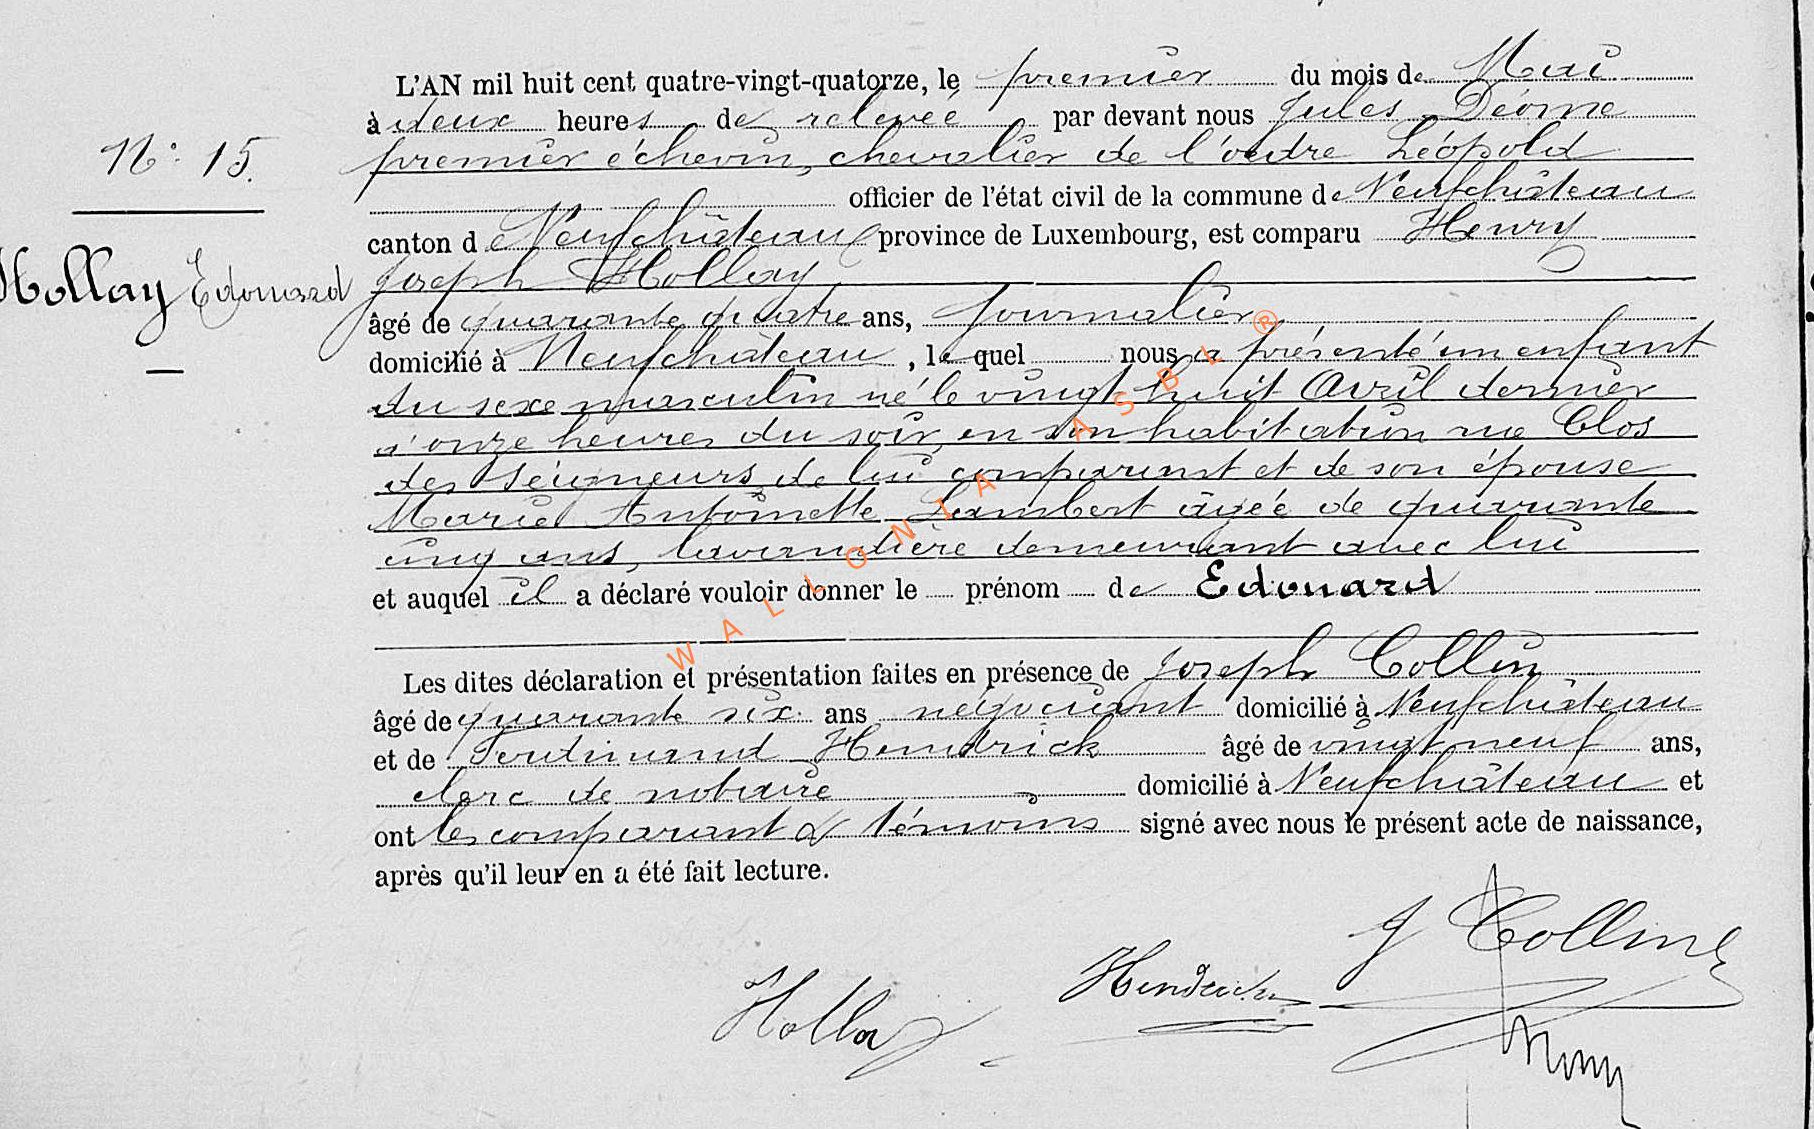 L'AN mil huit cent quatre-vingt-quatorze, le premier du mois de Mai
à deux heures de relevée par devant nous Jules Déome
N° 15.
premier échevin, chevalier de l'ordre Léopold
officier de l'état civil de la commune de Neufchâteau
canton de Neufchâteau province de Luxembourg, est comparu Henry
Hollay Edouard
Joseph Hollay
âgé de quarante quatre ans, journalier
domicilié à Neufchâteau, lequel nous a présenté un enfant
du sexe masculin né le vingt huit Avril dernier
à onze heures du soir, en son habitation rue Clos
des Seigneurs de lui comparant et de son épouse
Marie Antoinette Lambert âgée de quarante
cinq ans, lavandière demeurant avec lui
et auquel il a déclaré vouloir donner le prénom de Edouard
Les dites déclaration et présentation faites en présence de Joseph Collin
âgé de quarante six ans négociant domicilié à Neufchâteau
et de Ferdinand Hendrick âgé de vingt neuf ans,
clerc de notaire domicilié à Neufchâteau et
ont les comparant & témoins signé avec nous le présent acte de naissance,
après qu'il leur en a été fait lecture.
J Collin
Hollay
WALLONIA ASBL ®